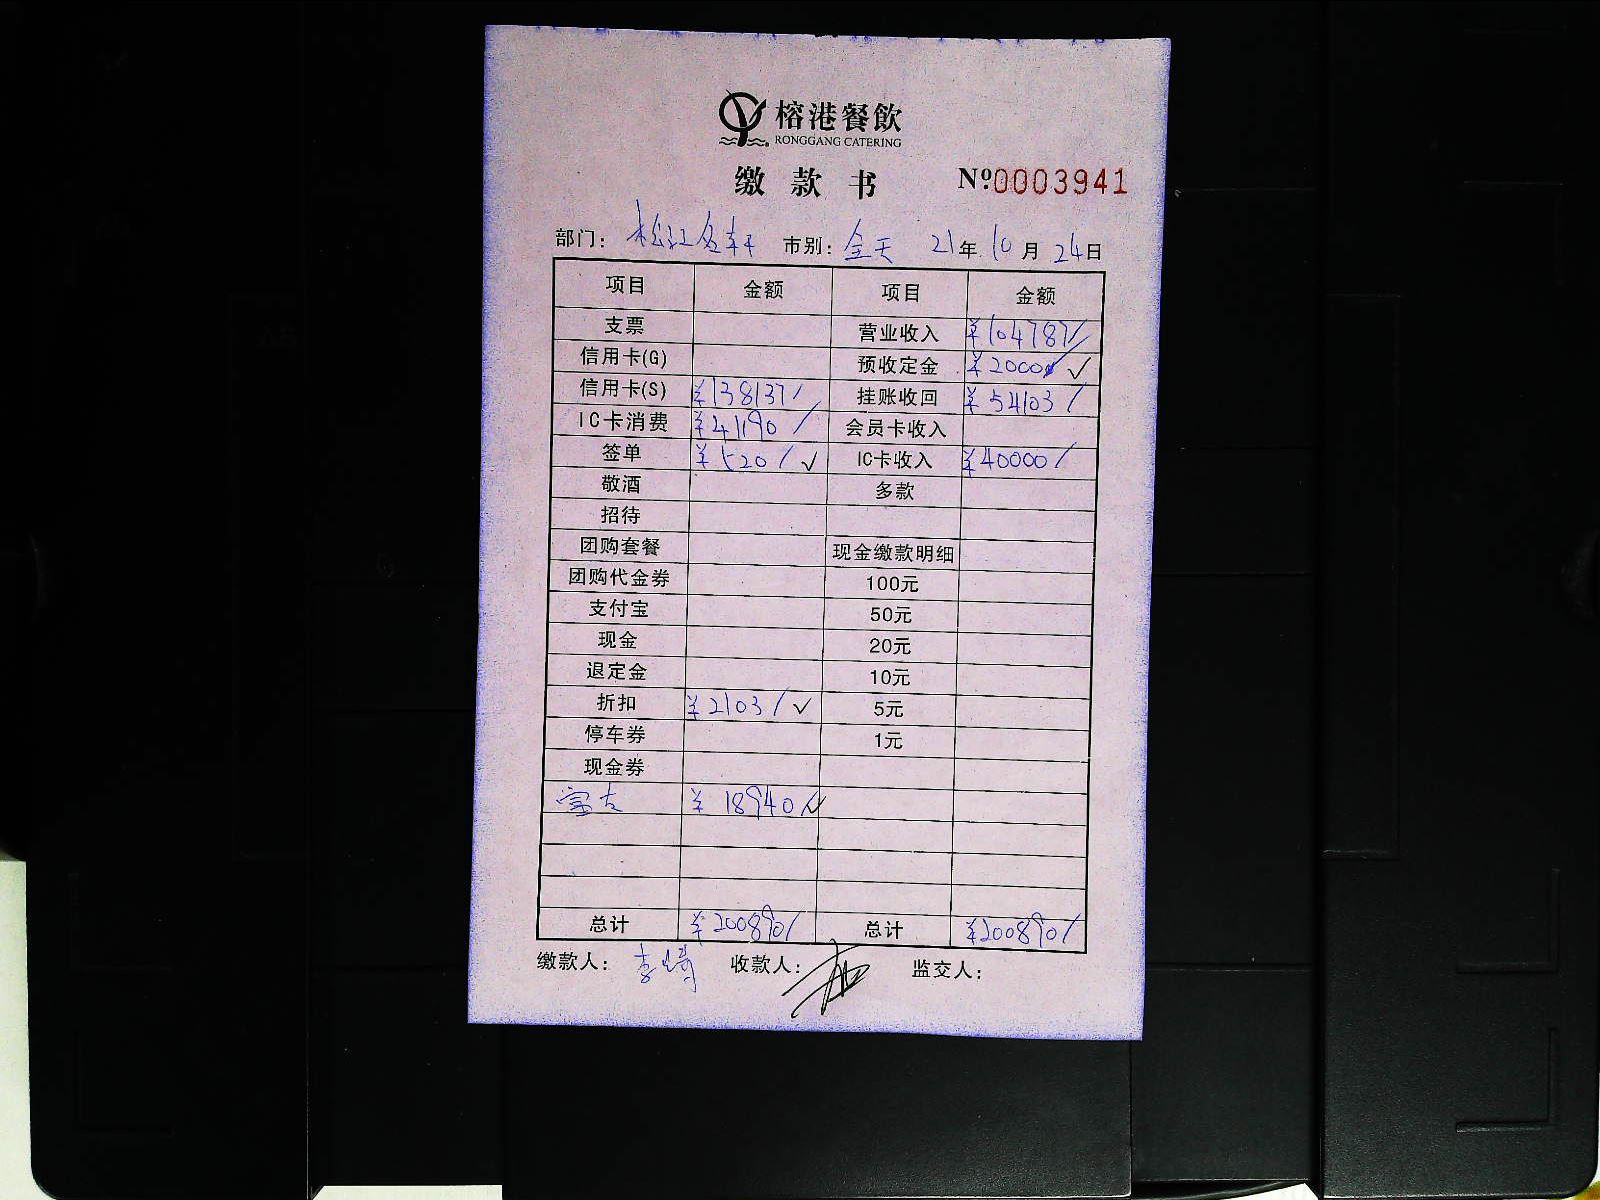 榕港餐飲
RONGGANG CATERING
缴款书 Nº0003941
部门: 松江名轩 市别: 全天 21年10月24日
项目 金额 项目 金额
支票 营业收入 ¥104787/
信用卡(G) 预收定金 ¥2000/ ✓
信用卡(S) ¥138137/ 挂账收回 ¥54103/
IC卡消费 ¥41190/ 会员卡收入
签单 ¥520/ ✓ IC卡收入 ¥40000/
敬酒 多款
招待
团购套餐 现金缴款明细
团购代金券 100元
支付宝 50元
现金 20元
退定金 10元
折扣 ¥2103/ ✓ 5元
停车券 1元
现金券
¥18940/✓
总计 ¥200890/ 总计 ¥200890/
缴款人: 收款人: 监交人: